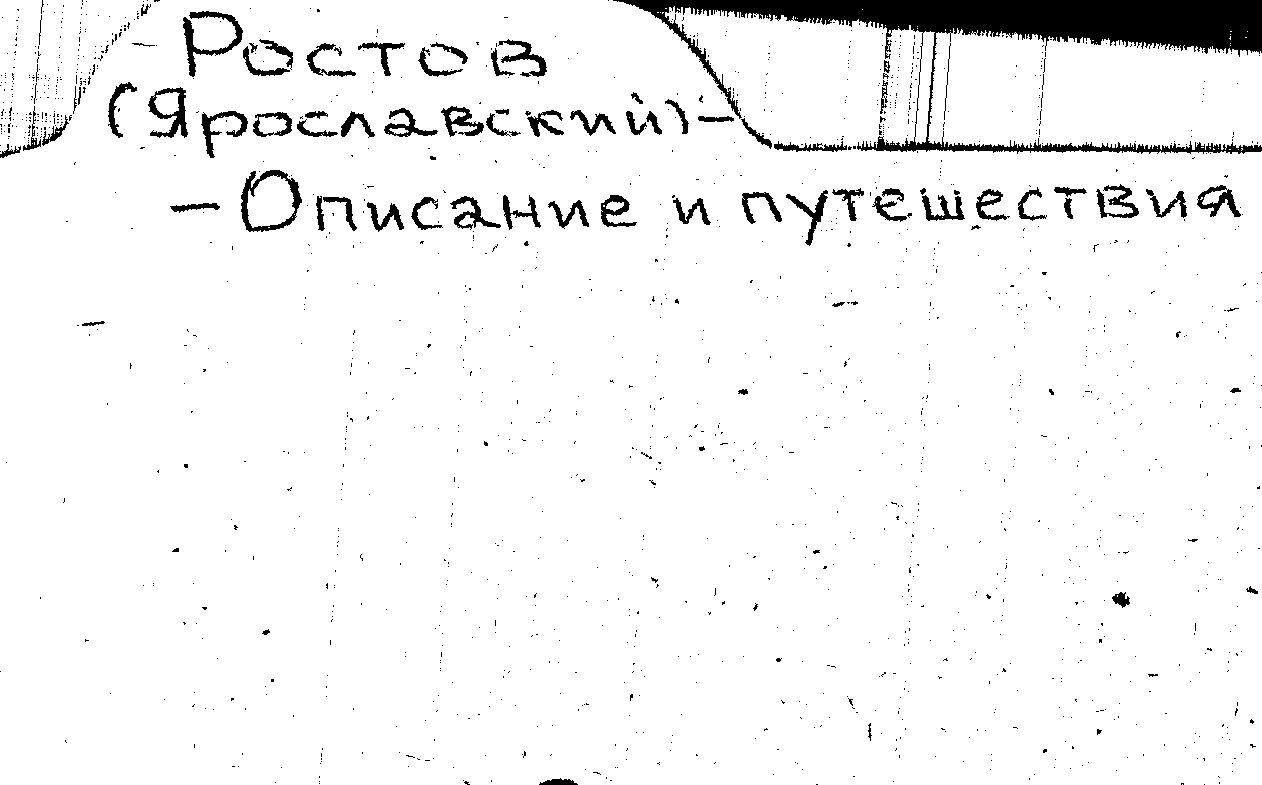 Ростов
(Ярославский)-
- Описание и путешествия